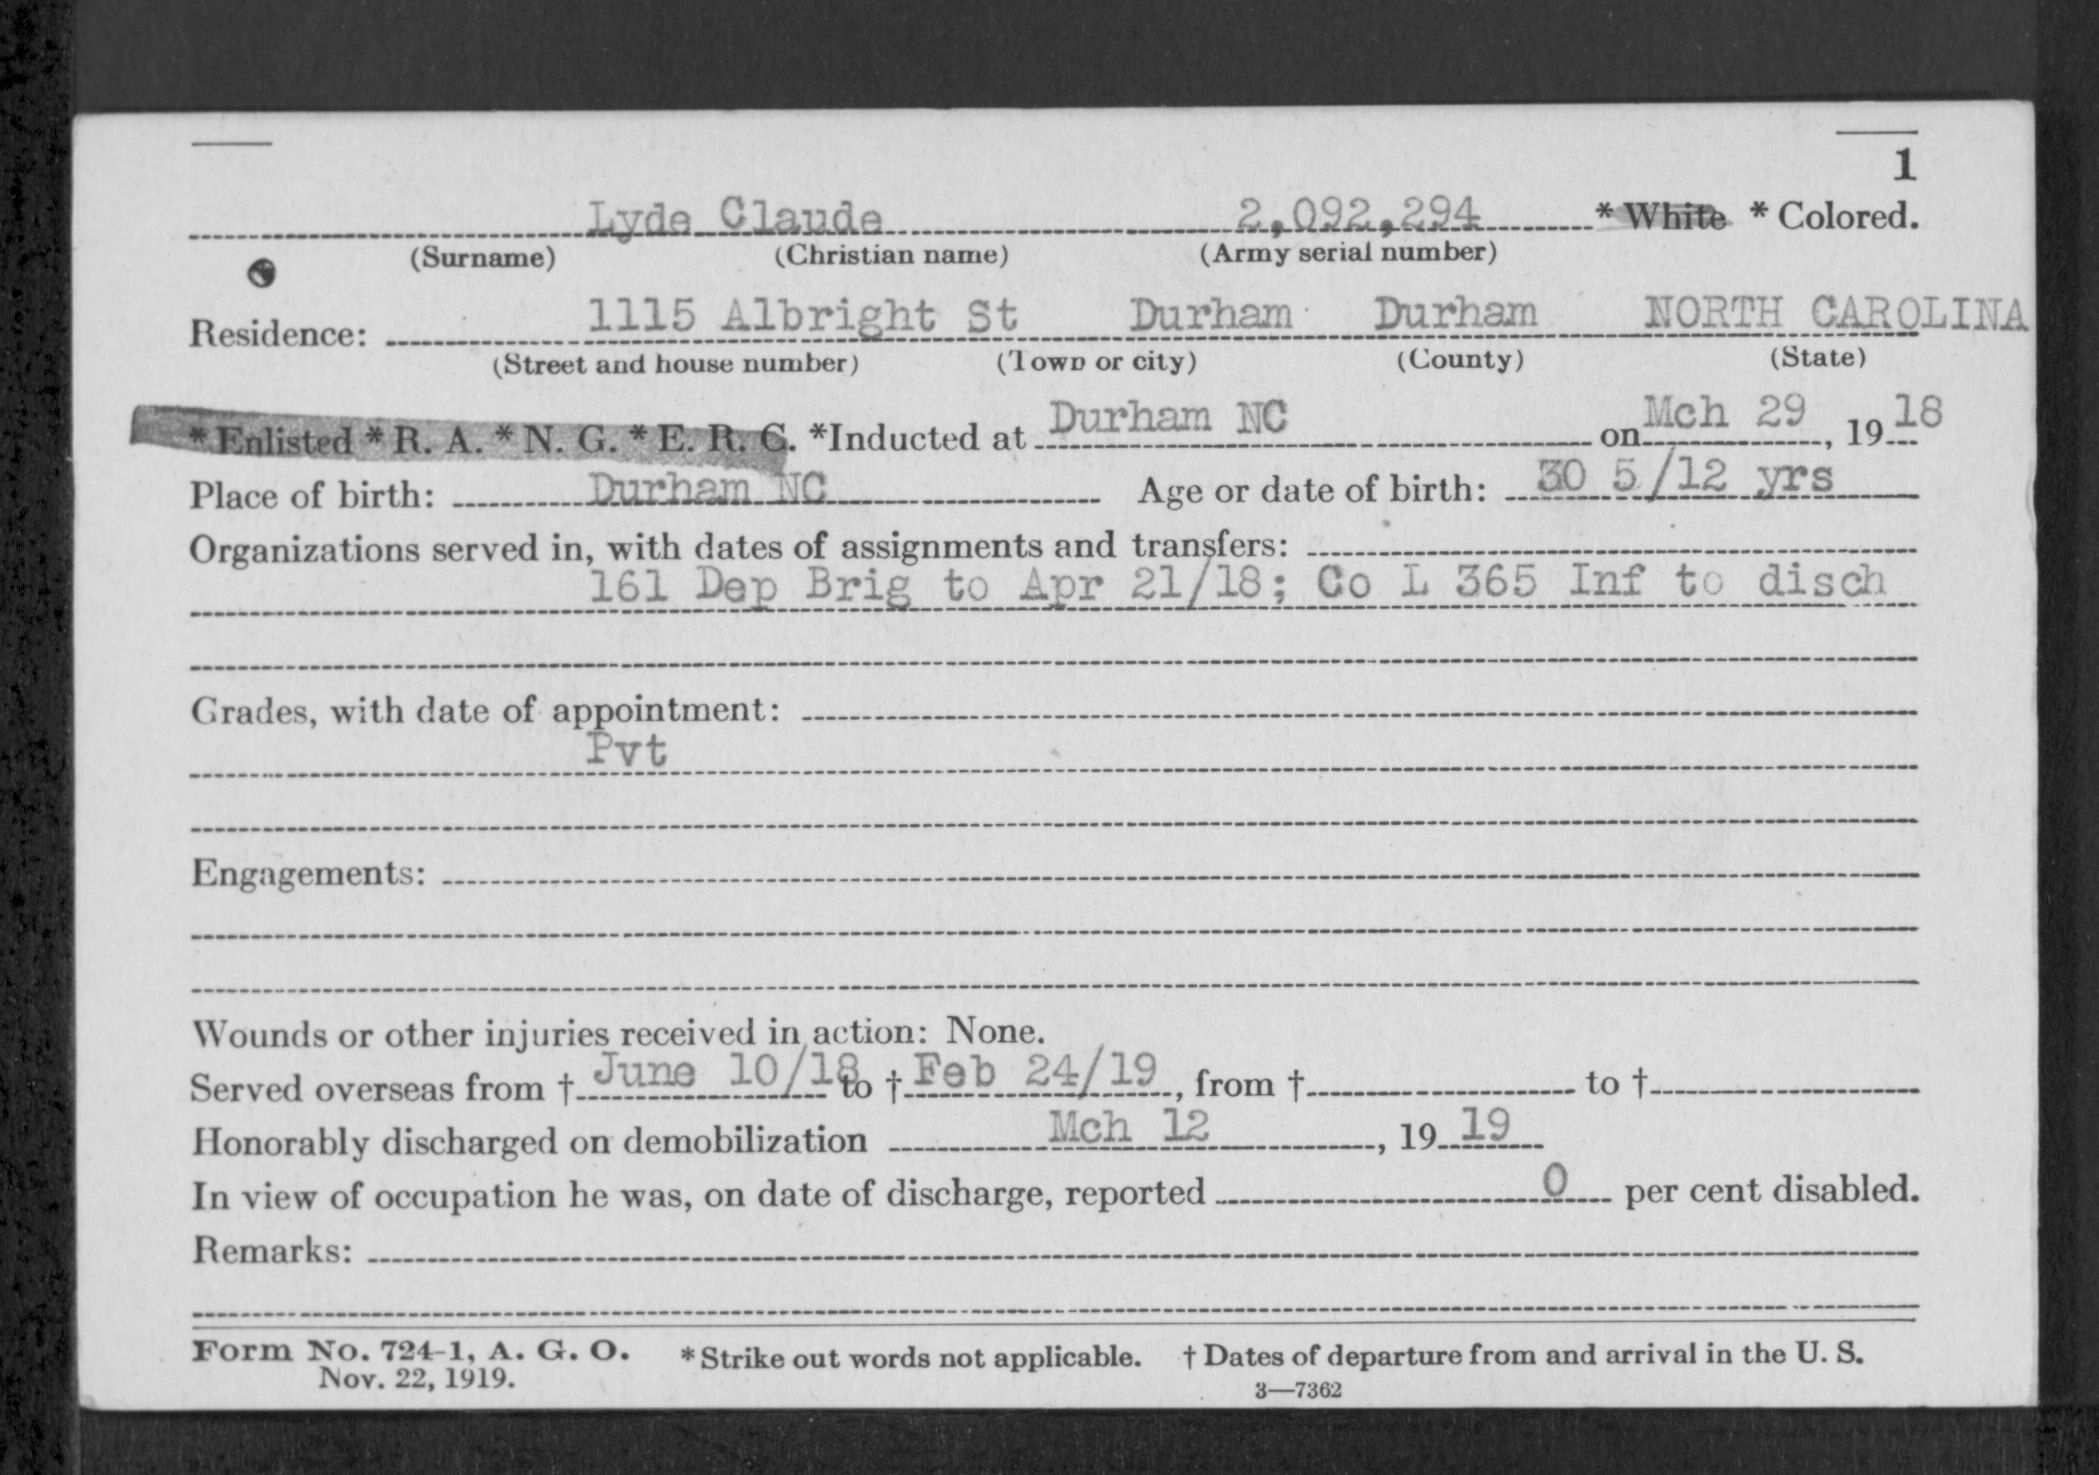 1
Lyde Claude 2,092,294 * White * Colored.
(Surname) (Christian name) (Army serial number)
Residence: 1115 Albright St Durham Durham NORTH CAROLINA
(Street and house number) (Town or city) (County) (State)
* Enlisted * R. A. * N. G. * E. R. C. *Inducted at Durham NC on Mch 29, 1918
Place of birth: Durham NC Age or date of birth: 30 5/12 yrs
Organizations served in, with dates of assignments and transfers:
161 Dep Brig to Apr 21/18; Co L 365 Inf to disch
Grades, with date of appointment:
Pvt
Engagements:
Wounds or other injuries received in action: None.
Served overseas from † June 10/18 to † Feb 24/19, from † to †
Honorably discharged on demobilization Mch 12, 1919
In view of occupation he was, on date of discharge, reported 0 per cent disabled.
Remarks:
Form No. 724-1, A. G. O. * Strike out words not applicable. † Dates of departure from and arrival in the U. S.
Nov. 22, 1919. 3—7362